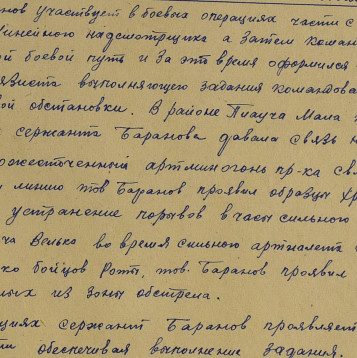 нов участвует в боевых операциях части с
линейного надсмотрщика а затем коман
ой боевой путь и за это время оформился
язиста выполняющего задания командова
вой обстановки. В районе Тлауча Мала
сержанта Баранова давала связь н
ожесточенный артминогонь пр-ка св
линию тов Баранов проявил образцы хр
устранение порывов в часы сильного
ча Велька во время сильного артналета
ко бойцов роты, тов. Баранов проявил
ых из зоны обстрела.
циях сержант Баранов проявляет
ти обеспечивая выполнение задания.